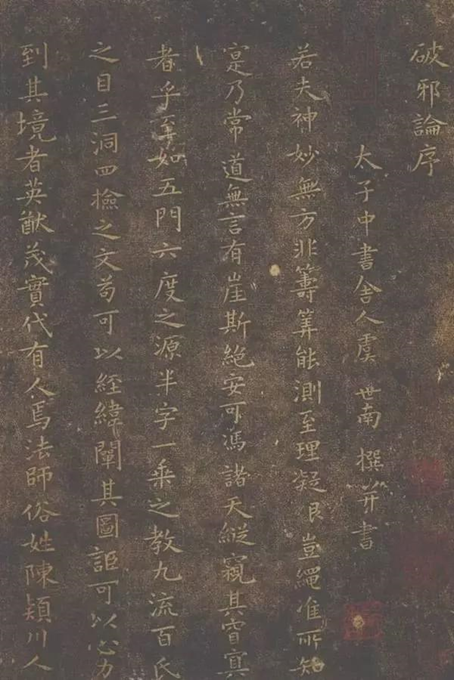 破邪論序
太子中書舍人虞世南撰并書
若夫神妙無方非籌筭能測至理凝豈繩准所知
寔乃常道無言有崖斯絕安可馮諸天縱窺其窅冥
者乎至如五門六度之源半字一乘之教九流百氏
之目三洞四檢之文苟可以經緯闡其圖詎可以心力
到其境者英猷茂實代有人焉法師俗姓陳潁川人